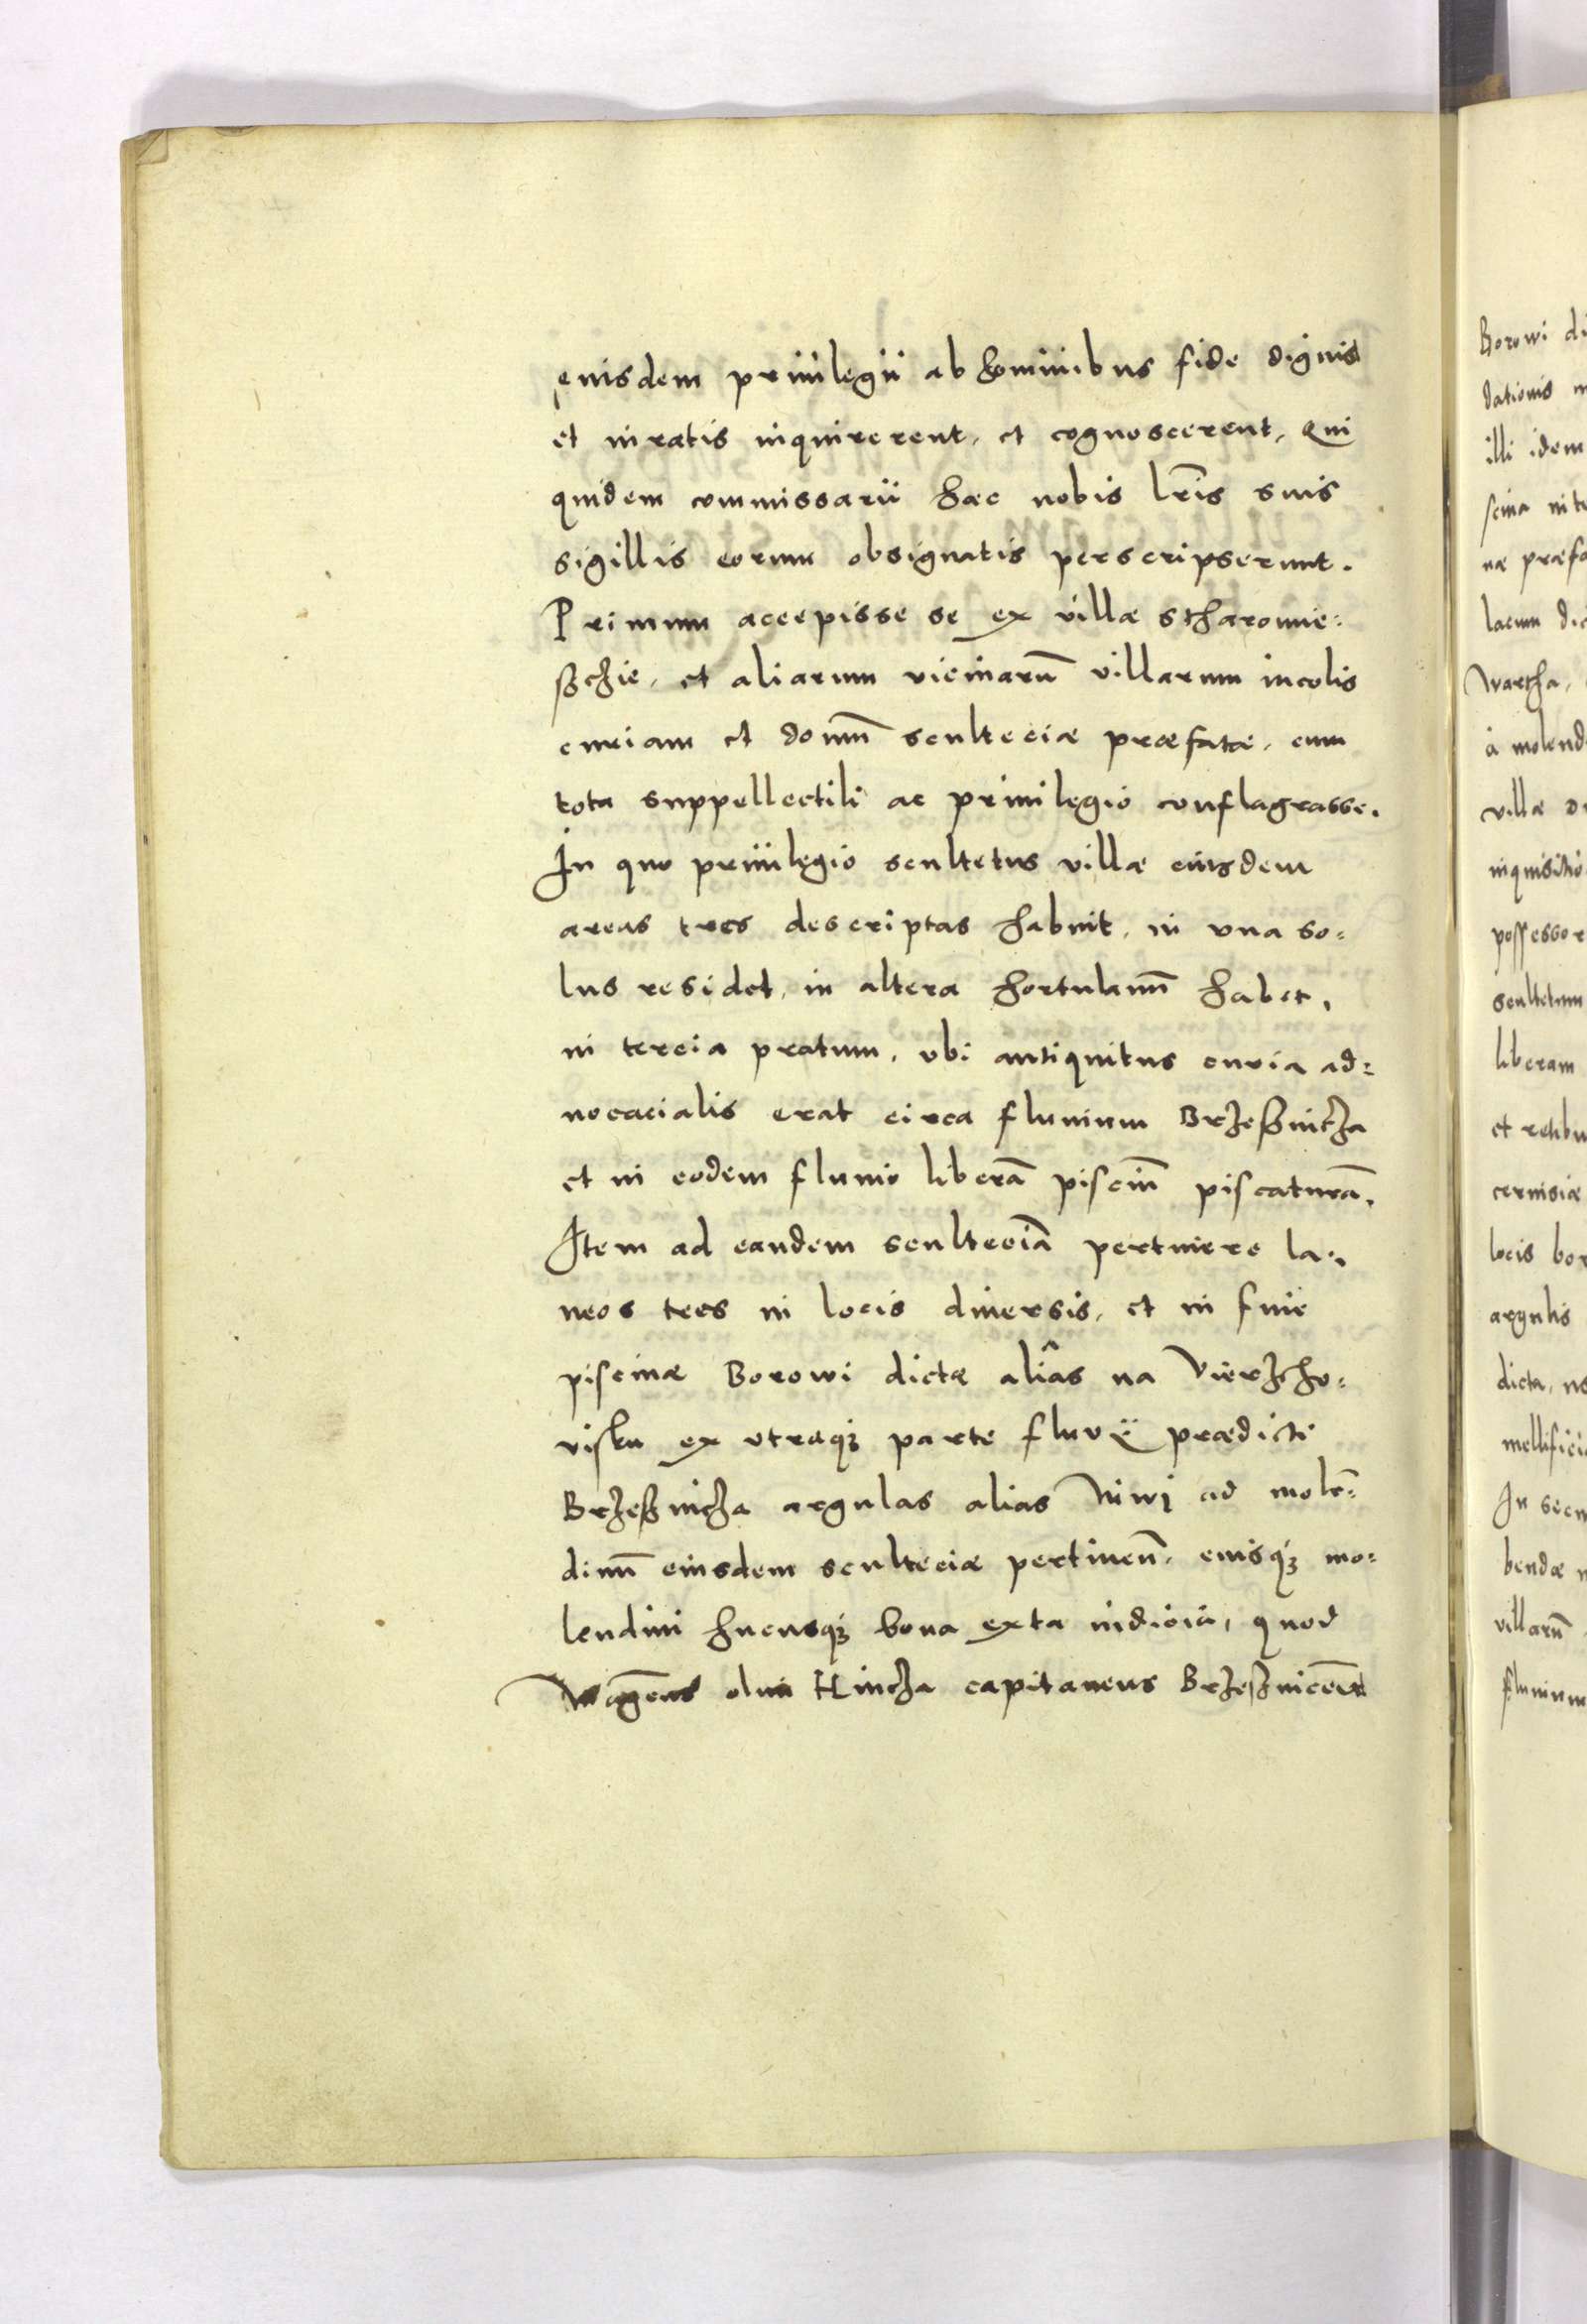 eiusdem priuilegii ab hominibus fide dignis
et iuratis inquirerent, et cognoscerent, Qui
quidem commissarii haec nobis lr̃is suis
sigillis eorum obsignatis perscripserunt.
Primum accepisse se ex villæ Stharomie:
ßchie, et aliarum vicinarũ villarum incolis
curiam et domũ sculteciæ præfatæ, cum
tota suppellectili ac priuilegio conflagrasse.
In quo priuilegio scultetus villæ eiusdem
areas tres descriptas habuit, in vna so:
lus residet, in altera hortulanũ habet,
in tercia pratum, vbi antiquitus curia ad:
uocacialis erat circa fluuium Brzeßnicza
et in eodem fluuio liberã pisciũ piscaturã,
Item ad eandem sculteciã pertinere la:
neos tres in locis diuersis, et in fine
piscinæ Borowi dictæ aliâs na Vierzcho:
visku ex vtraqꝫ parte fluvÿ prædicti
Brzeßnicza argulas alias Niwi ad molẽ:
dinũ eiusdem sculteciæ pertineñ, eiusqꝫ mo:
lendini hucusqꝫ bona exta indicia, quod
olim Hincza capitaneus Brzeßniceñ
Borowi di
dationis
illi idem
scina
næ præfa
lacum dic
Wartha,
à molend
villæ
inquisitio
possessor
scultetum
liberam
et retibu
cervisiæ
locis bor
argulis
dicta,
mellifici
In secu
bendæ
villarũ
fluuium